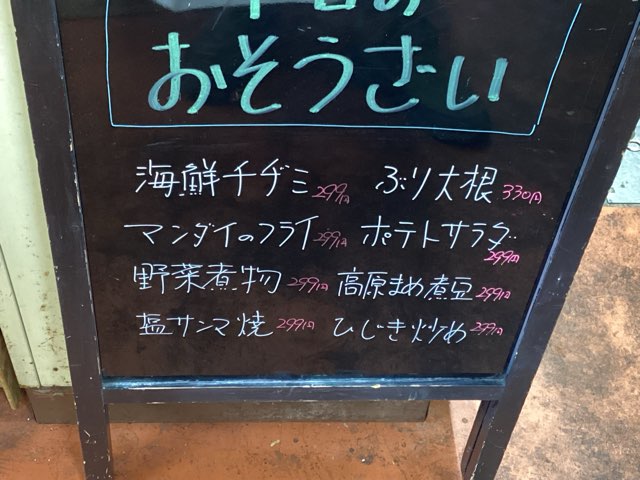 本日の
おそうざい
海鮮チヂミ 299円 ぶり大根 330円
マンダイのフライ 299円 ポテトサラダ 299円
野菜煮物 299円 高原まめ煮豆 299円
塩サンマ焼 299円 ひじき炒め 299円